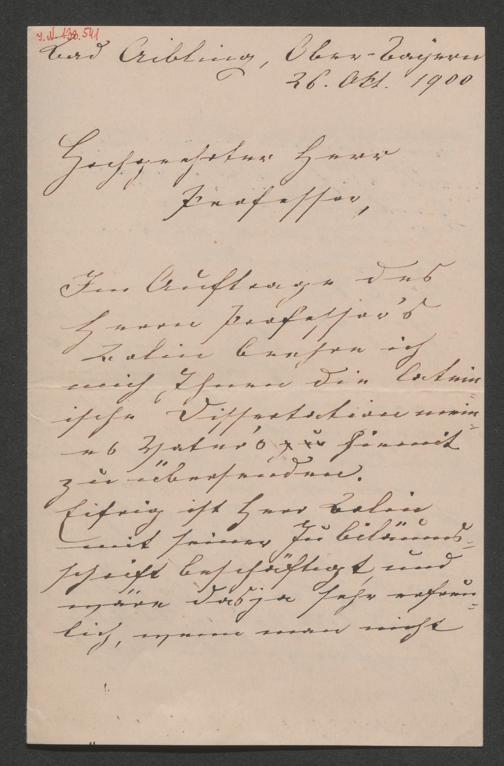 J.N. 138.541
Bad Aibling, Ober-Bayern
26. Okt. 1900
Hochgeehrter Herr
Professor,
Im Auftrage des
Herrn Professor's
Bolin beehre ich
mich, Ihnen die latein=
ische Dissertation mein=
es Vater's hiermit
zu übersenden.
Eifrig ist Herr Bolin
mit seiner Jubiläums=
schrift beschäftigt, und
wäre das ja sehr erfreu=
lich, wenn man nicht